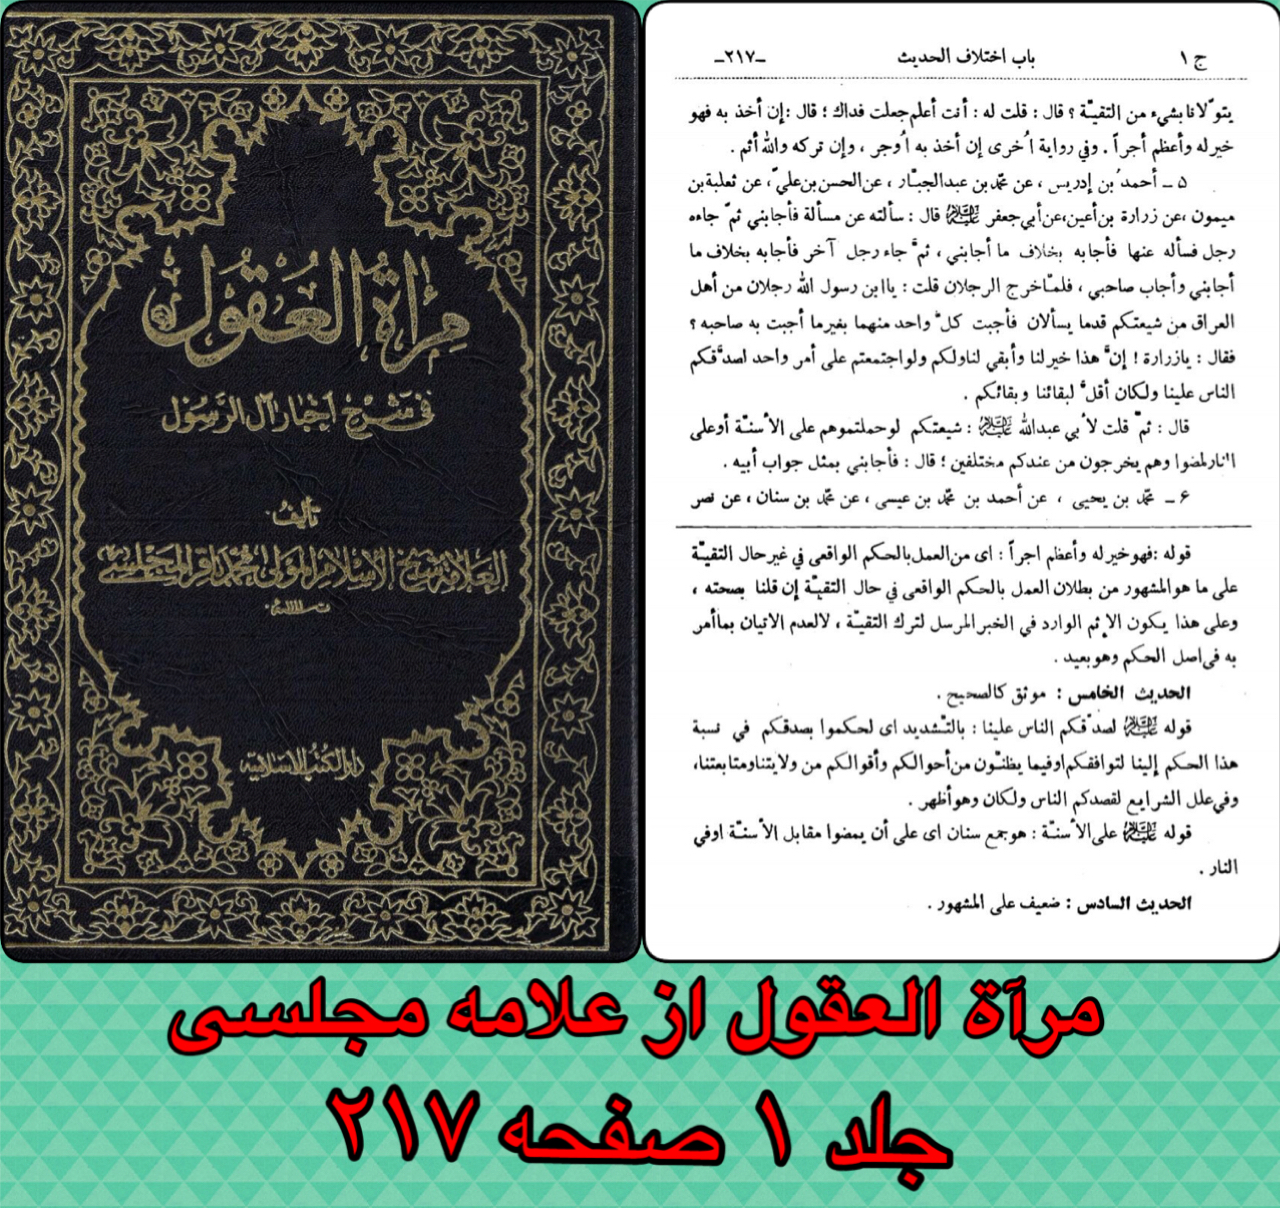 مرآة العقول
في شرح أخبار آل الرسول
تأليف:
العلامة شيخ الإسلام المولى محمد باقر المجلسي
دار الكتب الإسلامية
ج ١
باب اختلاف الحديث
ـ٢١٧ـ
يتولّانا بشيء من التقيّة ؟ قال : قلت له : أنت أعلم جعلت فداك ؛ قال : إن أخذ به فهو
خير له وأعظم أجراً . وفي رواية اُخرى إن أخذ به اُوجر ، وإن تركه والله أثم .
٥ ـ أحمدُ بن إدريس ، عن محمّد بن عبدالجبّار ، عن الحسن بن عليّ ، عن ثعلبة بن
ميمون ، عن زرارة بن أعين ، عن أبي جعفر عليه السلام قال : سألته عن مسألة فأجابني ثمّ جاءه
رجل فسأله عنها فأجابه بخلاف ما أجابني ، ثمَّ جاء رجل آخر فأجابه بخلاف ما
أجابني وأجاب صاحبي ، فلمّا خرج الرجلان قلت : يا ابن رسول الله رجلان من أهل
العراق من شيعتكم قدما يسألان فأجبت كلَّ واحد منهما بغير ما أجبت به صاحبه ؟
فقال : يا زرارة ! إنَّ هذا خير لنا وأبقى لنا ولكم ولو اجتمعتم على أمر واحد لصدَّقكم
الناس علينا ولكان أقلَّ لبقائنا وبقائكم .
قال : ثمّ قلت لأبي عبدالله عليه السلام : شيعتكم لو حملتموهم على الأسنّة أو على
النار لمضوا وهم يخرجون من عندكم مختلفين ؛ قال : فأجابني بمثل جواب أبيه .
٦ ـ محمّد بن يحيى ، عن أحمد بن محمّد بن عيسى ، عن محمّد بن سنان ، عن نصر
قوله : فهو خير له وأعظم اجراً : اى من العمل بالحكم الواقعى في غير حال التقيّة
على ما هو المشهور من بطلان العمل بالحكم الواقعى في حال التقيّة إن قلنا بصحته ،
وعلى هذا يكون الإثم الوارد في الخبر المرسل لترك التقيّة ، لا لعدم الاتيان بما أمر
به في اصل الحكم وهو بعيد .
الحديث الخامس : موثق كالصحيح .
قوله عليه السلام لصدّقكم الناس علينا : بالتّشديد اى لحكموا بصدقكم في نسبة
هذا الحكم إلينا لتوافقكم او فيما يظنّون من أحوالكم وأقوالكم من ولايتنا ومتابعتنا،
وفي علل الشرايع لقصدكم الناس ولكان وهو أظهر .
قوله عليه السلام على الأسنّة : هو جمع سنان اى على أن يمضوا مقابل الأسنّة اوفي
النار .
الحديث السادس : ضعيف على المشهور .
مرآة العقول از علامه مجلسی
جلد ۱ صفحه ۲۱۷